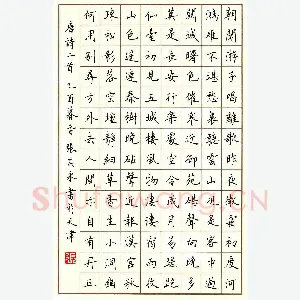 朝聞游子唱離歌昨夜微霜初度河
鴻雁不堪愁裏聽雲山況是客中過
關城曙色催寒近御苑砧聲向晚多
莫是長安行樂處空令歲月易蹉跎
仙臺初見五城樓風物淒淒宿雨收
山色遙連秦樹晚砧聲近報漢宮秋
疏松影落空壇靜細草香生小洞幽
何用別尋方外去人間亦自有丹丘
唐詩二首 乙酉暮春 張 書於天津